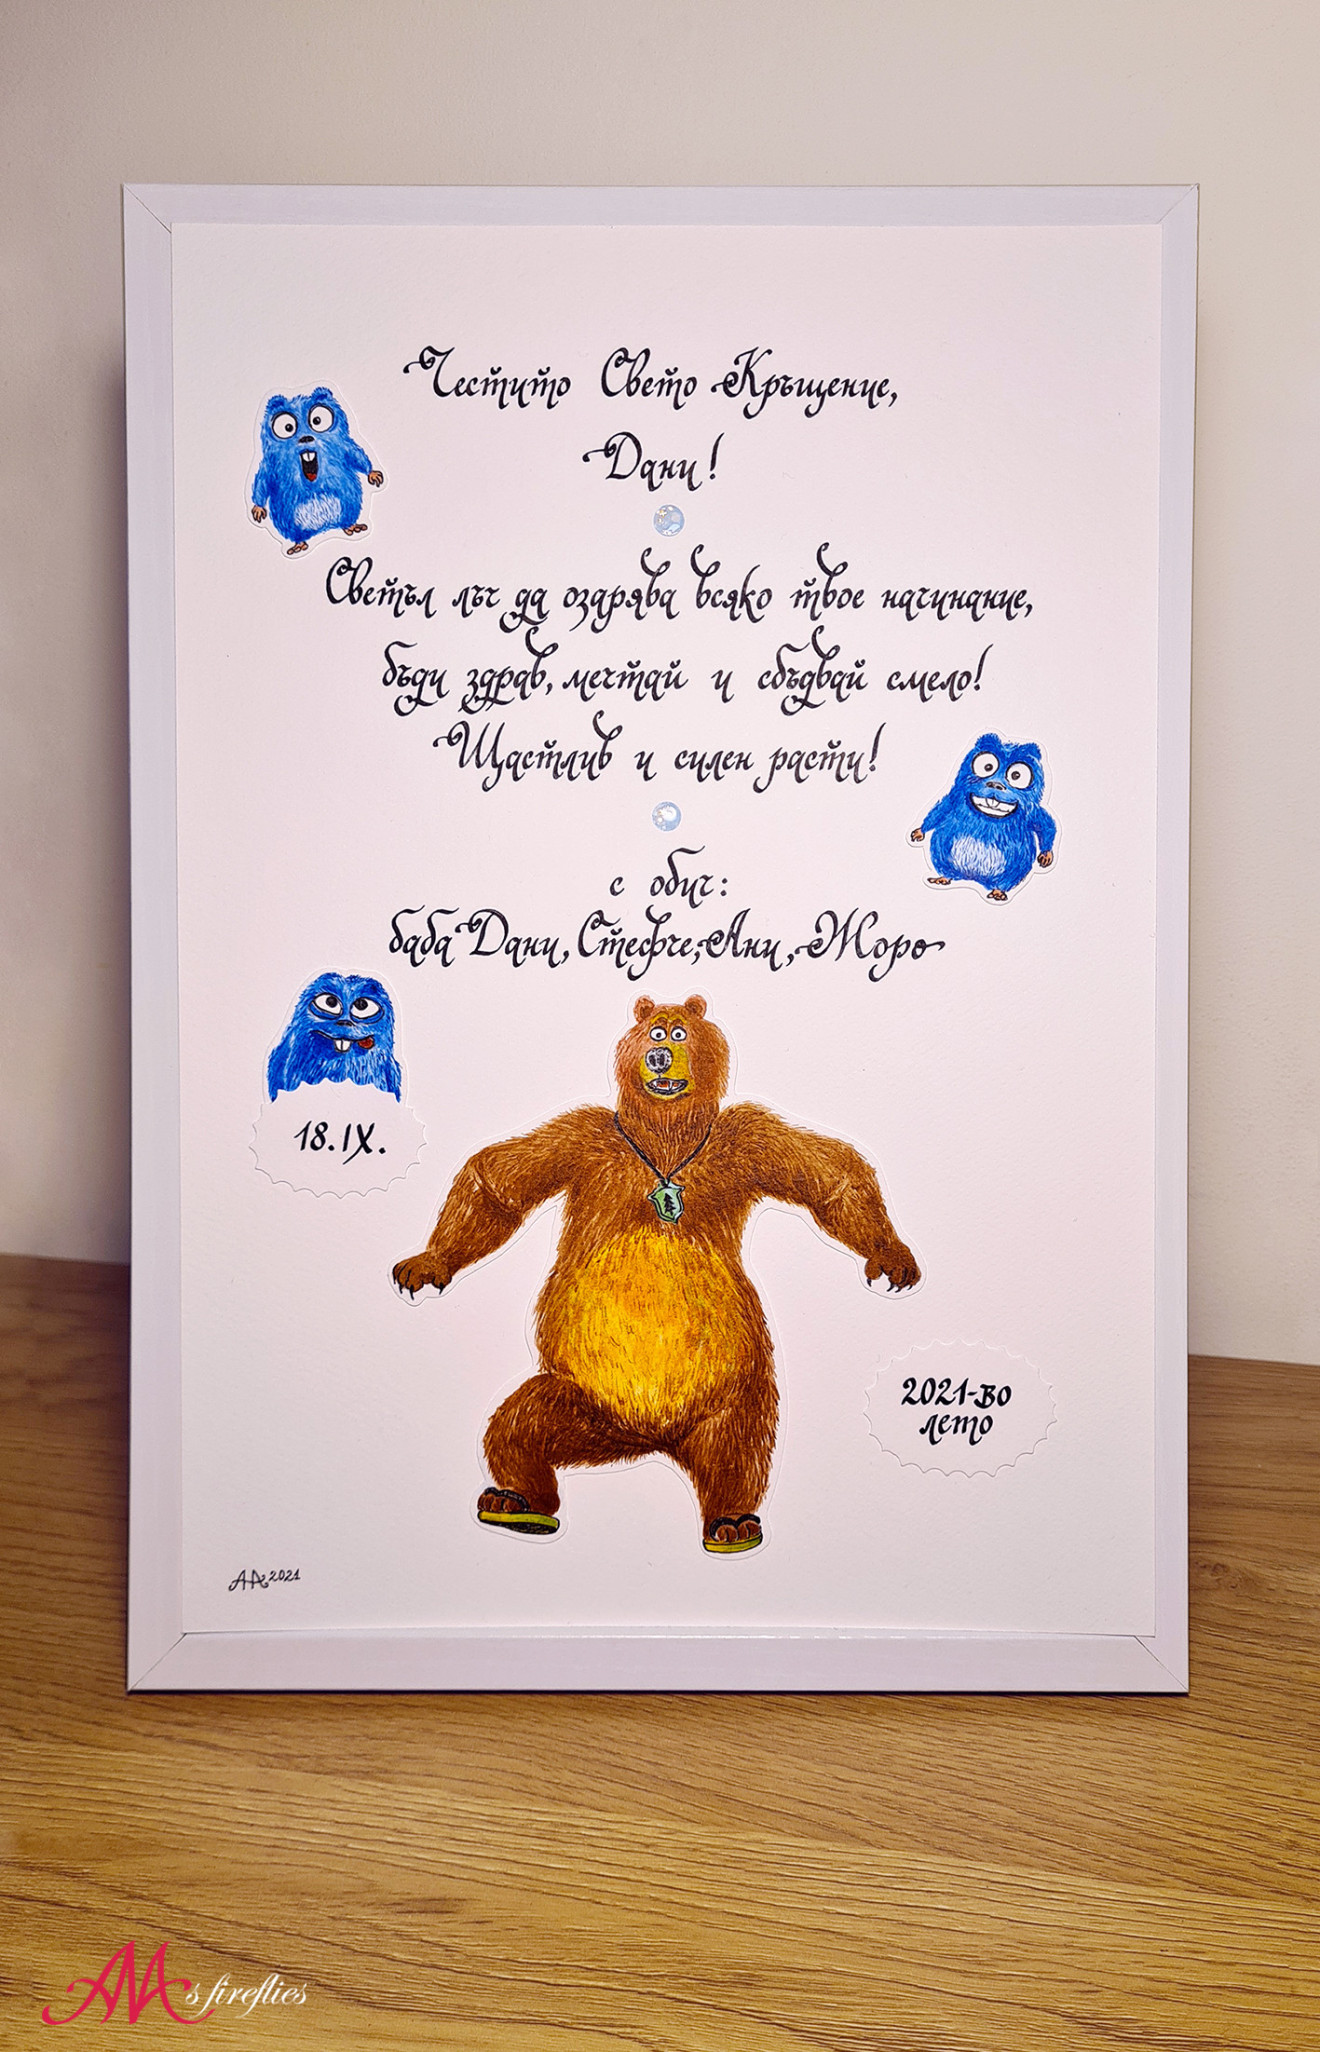 Честито Свето Кръщение,
Дани!
Светъл лъч да озарява всяко твое начинание,
бъди здрав, мечтай и сбъдвай смело!
Щастлив и силен расти!
с обич:
баба Дани, Стефче, Ани, Жоро
18.IX.
2021-во
лето
АА 2021
AVA's fireflies